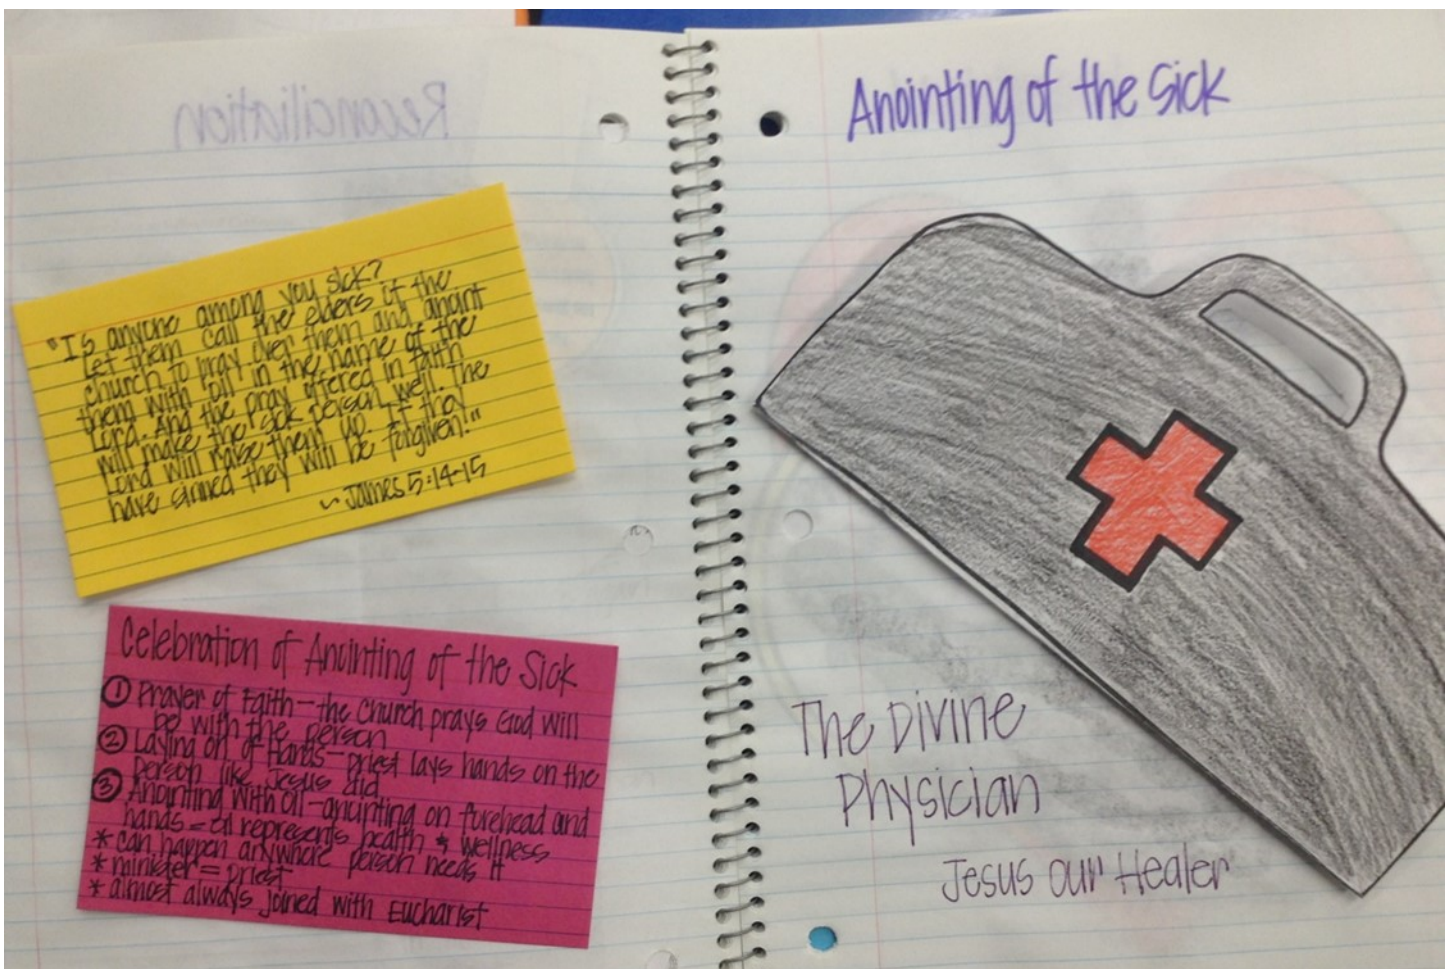 Reconciliation
"Is anyone among you sick?
Let them call the elders if the
church to pray over them and anoint
them with oil in the name of the
Lord. And the pray offered in faith
will make the sick person well. The
Lord will raise them up. If they
have sinned they will be forgiven."
~James 5:14-15
Celebration of Anointing of the Sick
① Prayer of Faith - the Church prays God will
be with the person
② Laying on of Hands - priest lays hands on the
person like Jesus did
③ Anointing with Oil - anointing on forehead and
hands = oil represents health & wellness
* can happen anywhere person needs it
* minister = priest
* almost always joined with Eucharist
Anointing of the Sick
The Divine
Physician
Jesus our Healer